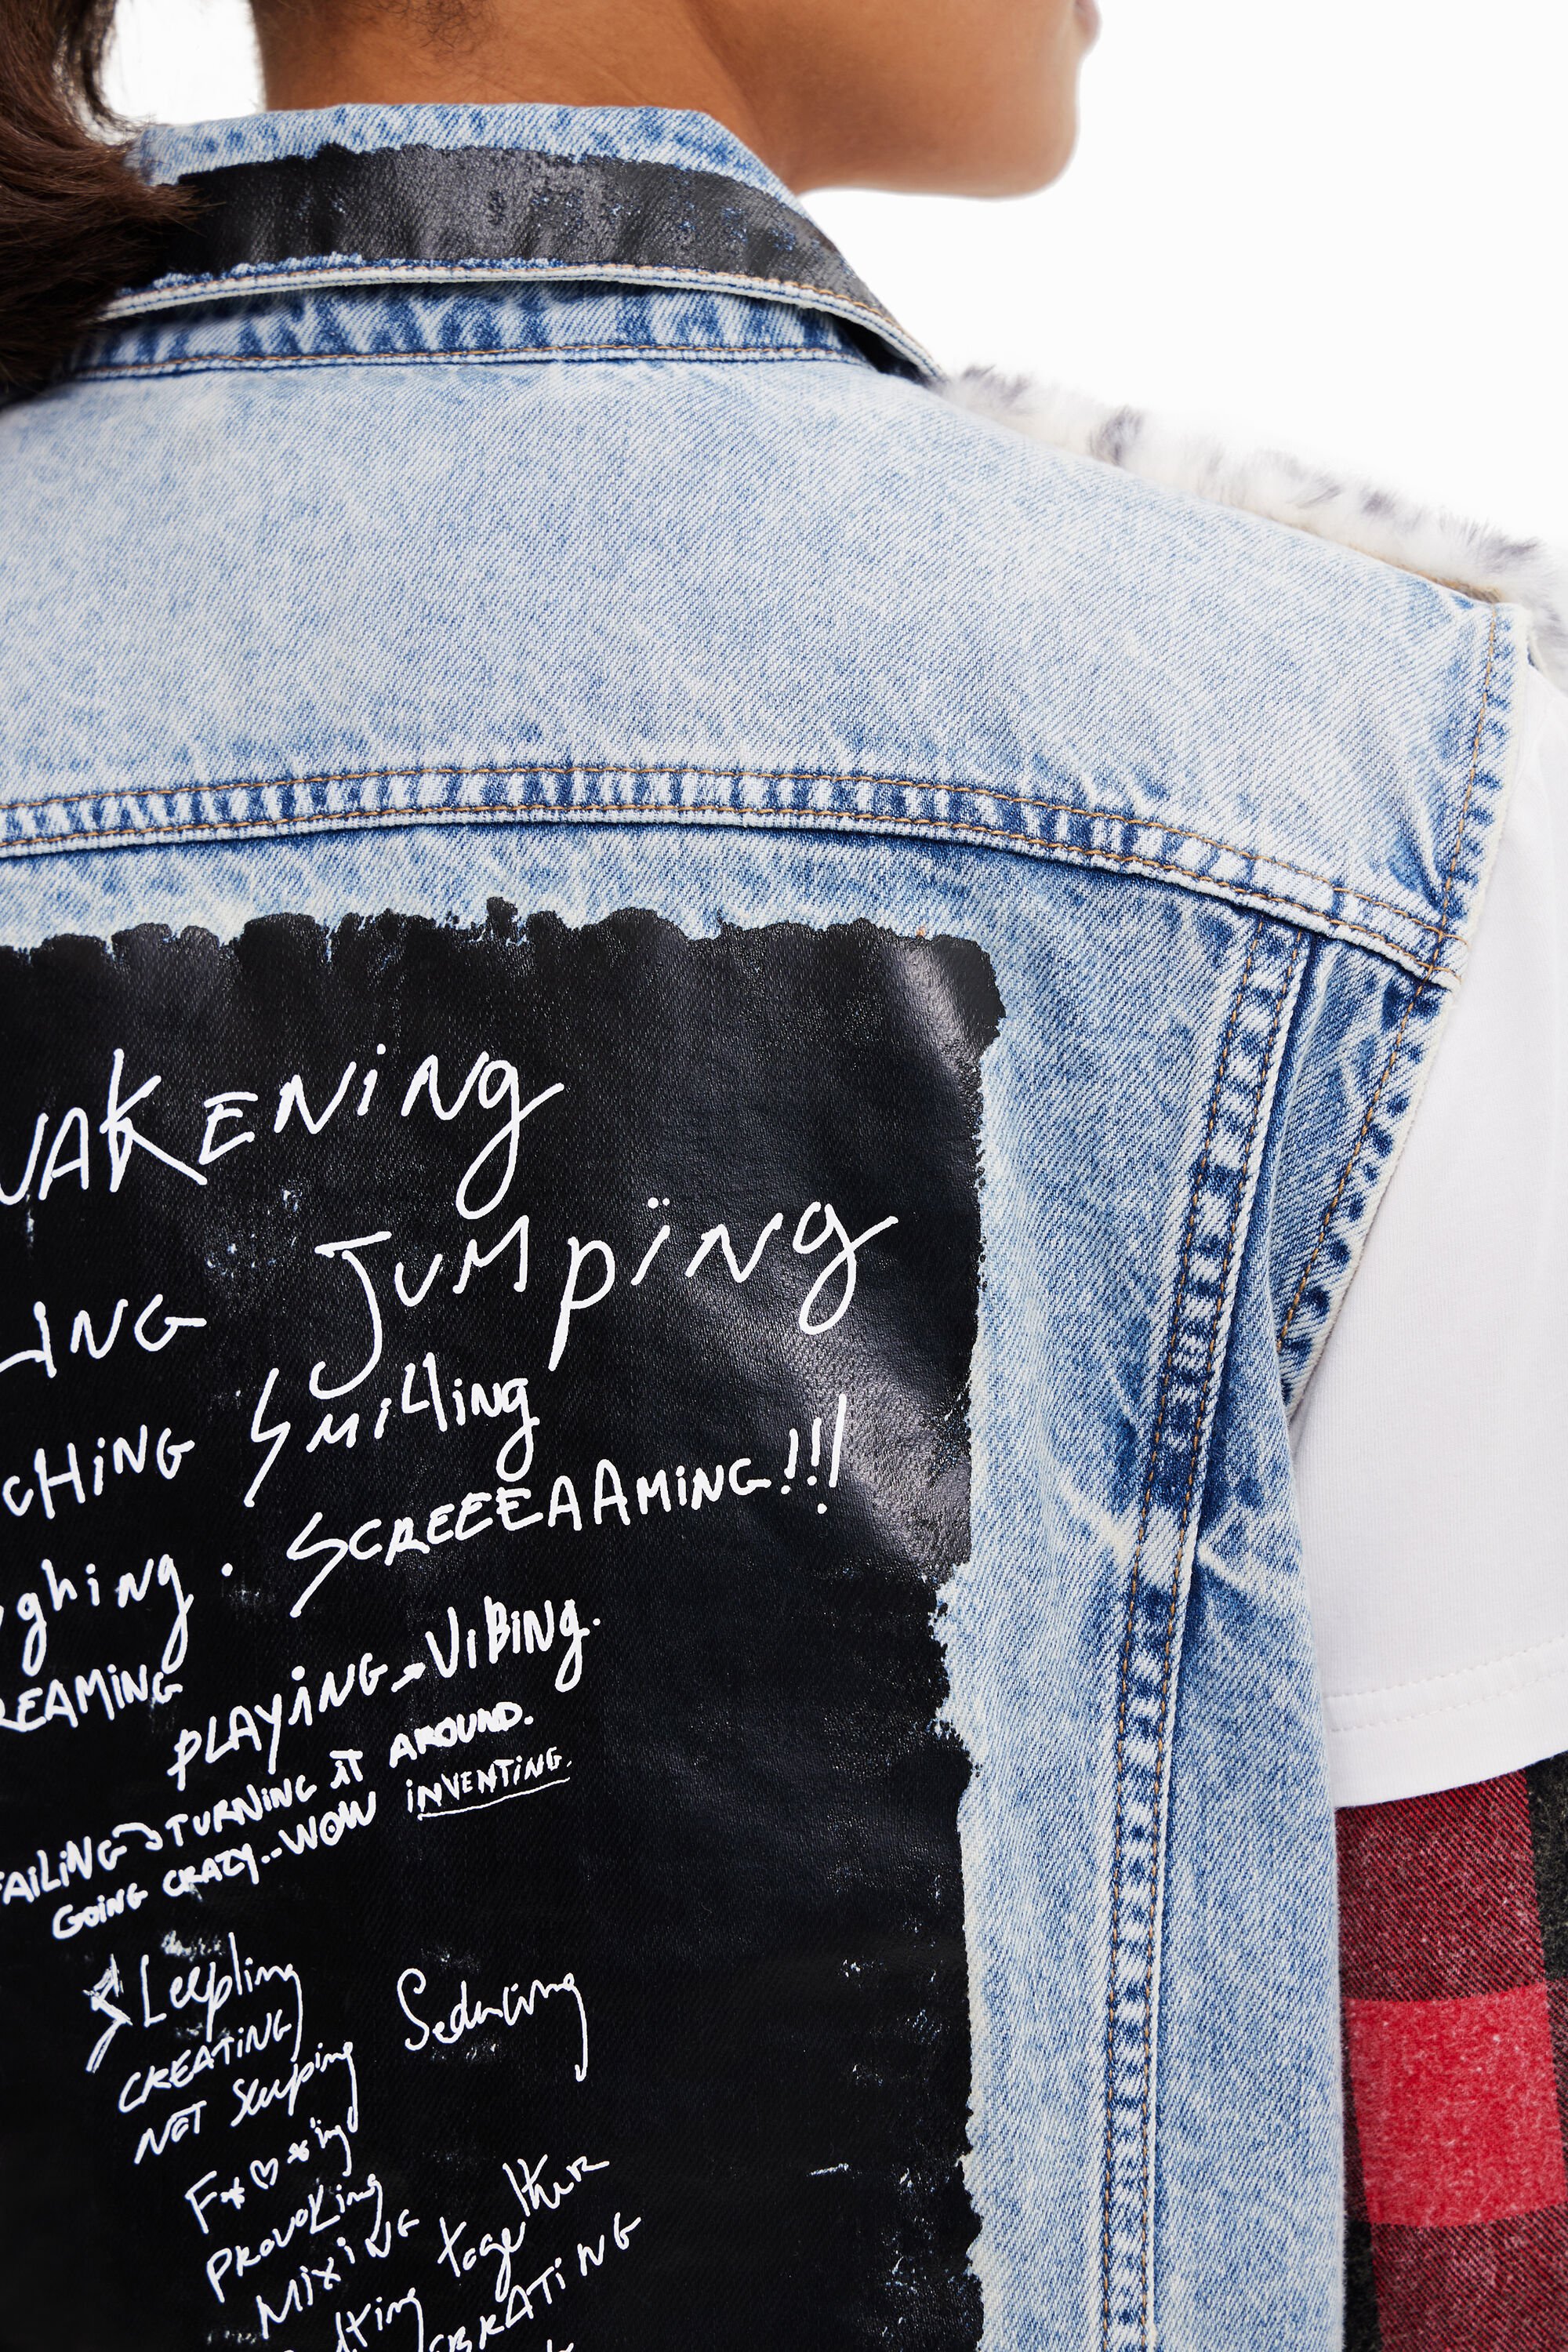 WAKENING
LING JUMPiNG
CHiNG SMilling
ghing. SCREEEAAMiNG!!!
REAMING
PLAYiNG→ViBiNg.
FAiLiNG→TURNiNG iT AROUND.
GOiNG CRAZY..WOW iNVENTiNG.
SLeepling Seducing
CREATiNG
NOT Sleeping
F*♡*ing
PROVOKing
MiXiNG together
lting BRATiNG